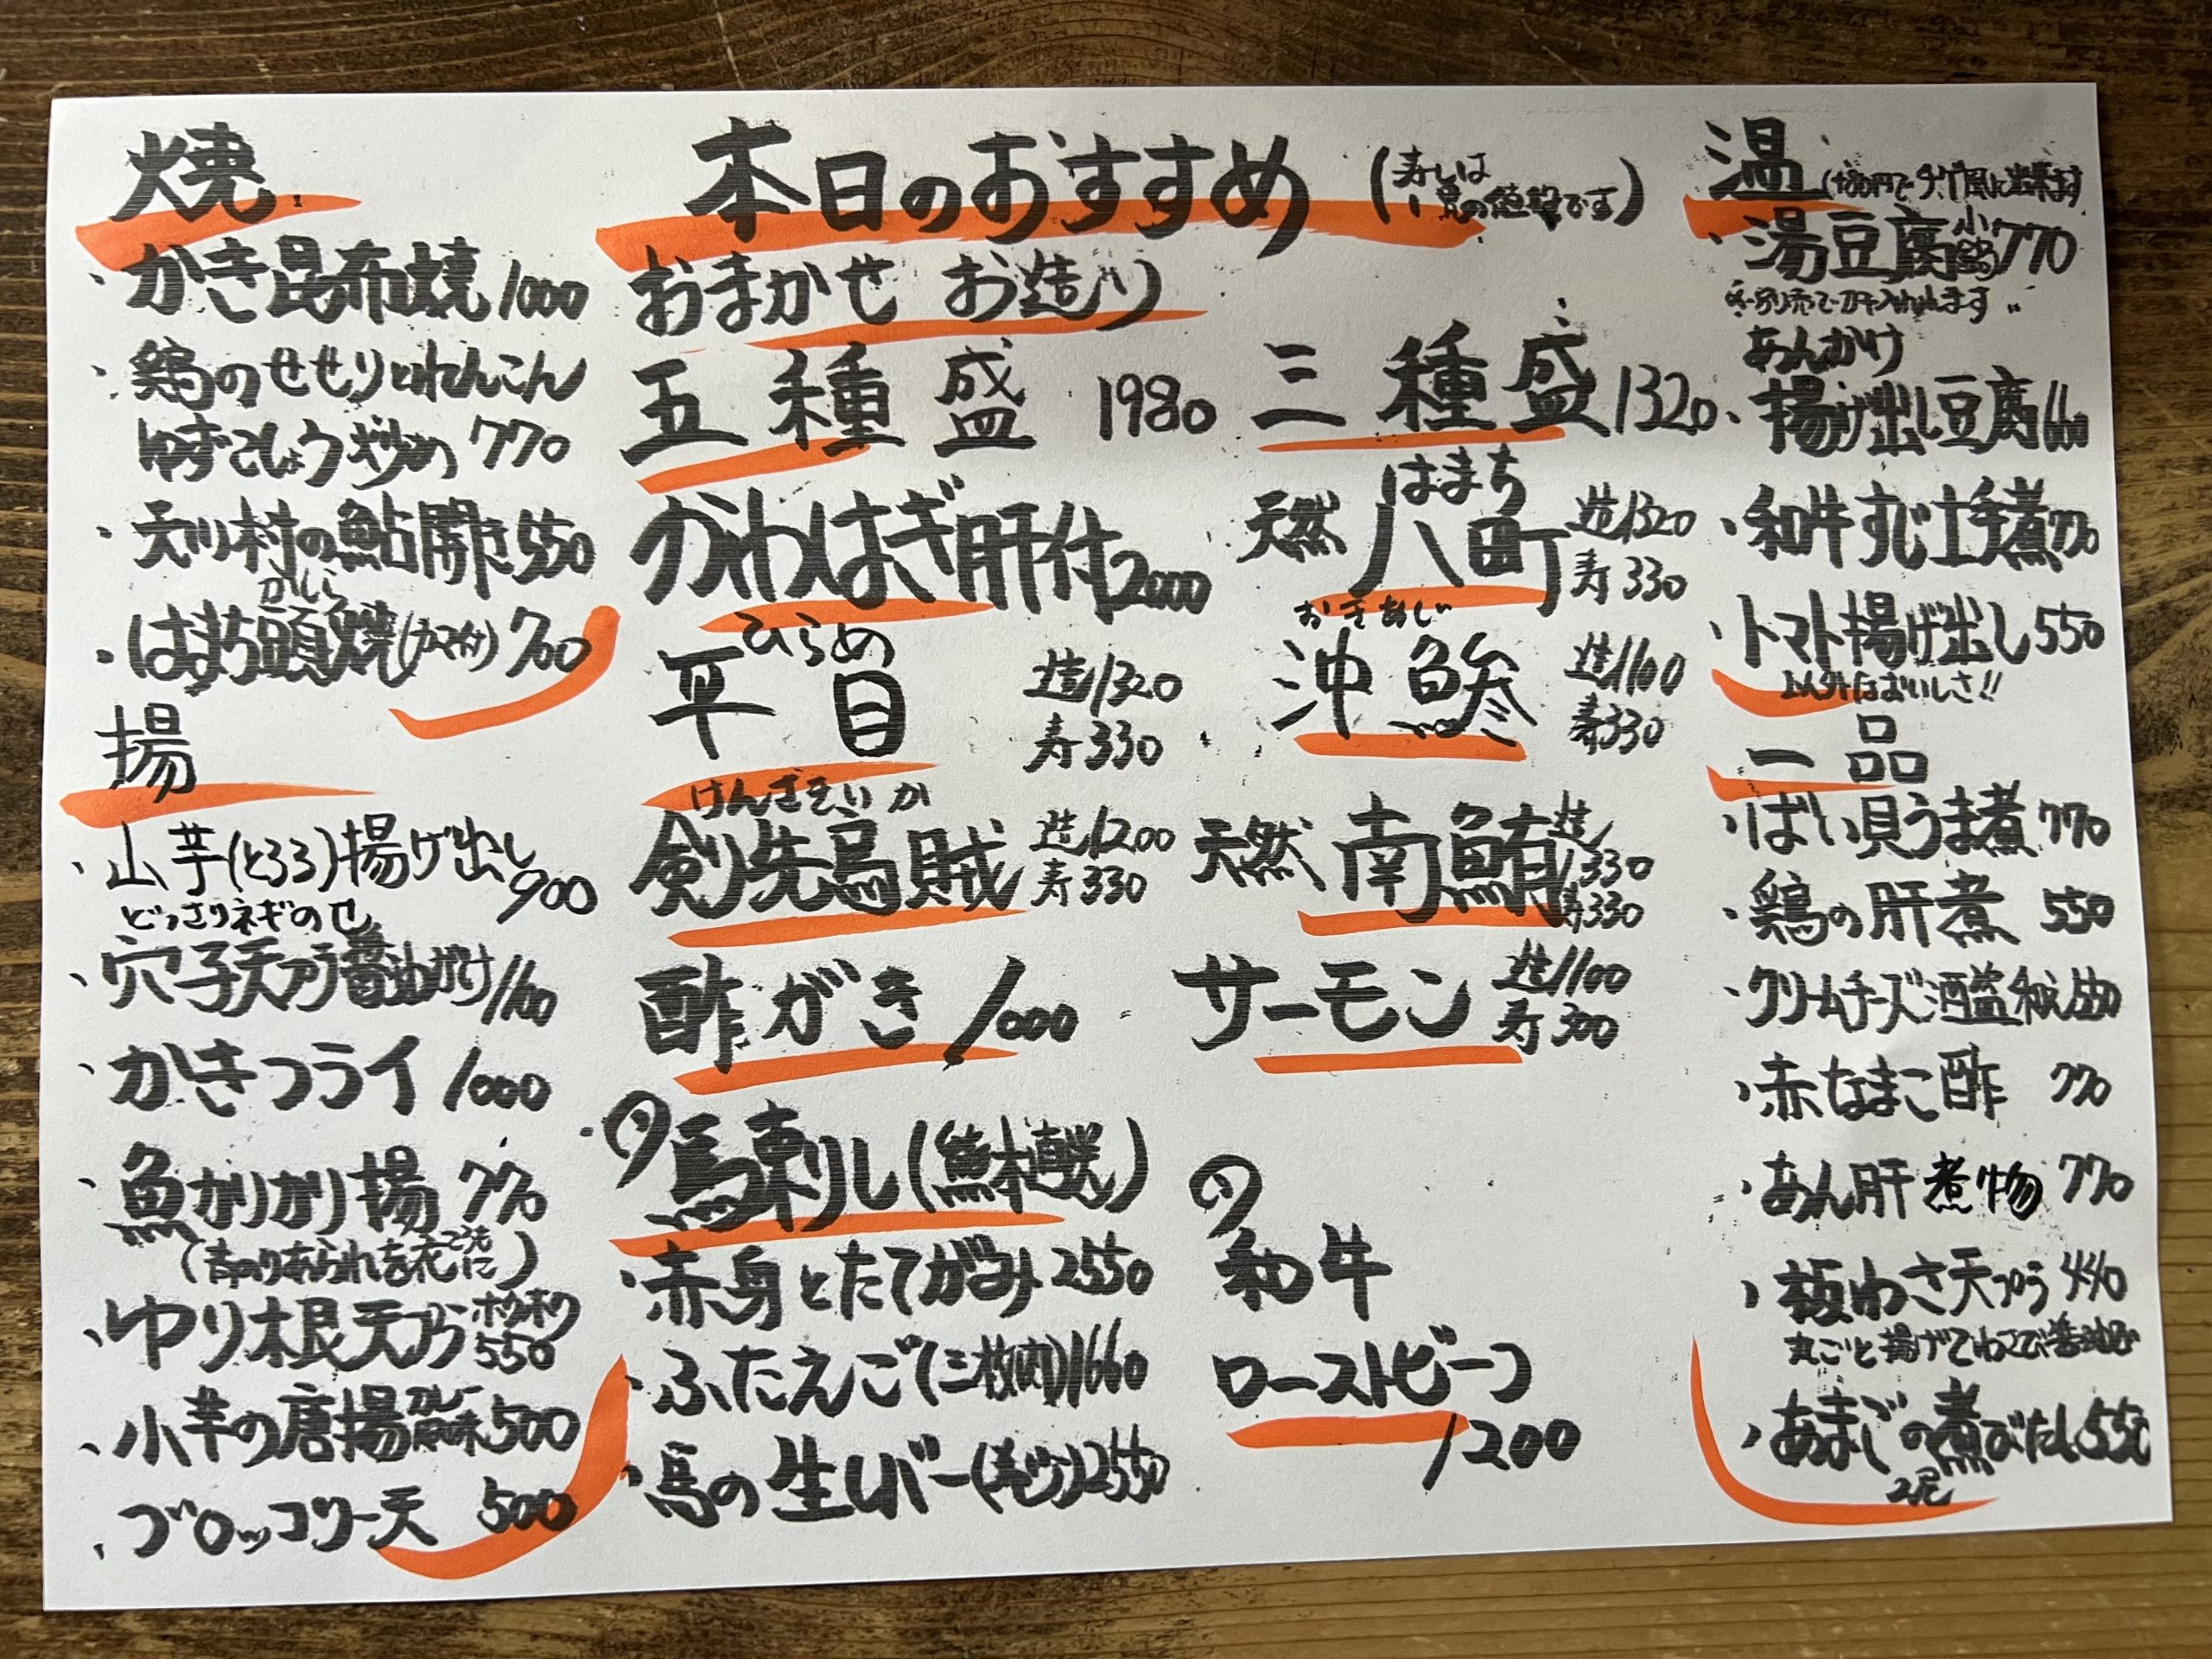 焼
・かき昆布焼 1000
・鶏のせせりとれんこん
ゆずこしょう炒め 770
・天川村の鮎開き 550
かしら
・はまち頭焼(カマ付) 700
揚
・山芋(とろろ)揚げ出し 900
どっさりネギのせ
・穴子天プラ醤油がけ 1100
・かきフライ 1000
・魚かりかり揚 770
(青のりあられを衣に)
・ゆり根天プラ ホクホク 550
・小芋の唐揚 カレー風味 500
・ブロッコリー天 500
本日のおすすめ
(寿しは
1貫の値段です)
おまかせ お造り
五種盛 1980
三種盛 1320
かわはぎ肝付 2000
はまち
天然 八町 造1320
寿330
ひらめ
平目 造1320
寿330
おきあじ
沖鯵 造1100
寿330
けんざきいか
剣先烏賊 造1200
寿330
天然 南鮪 造1330
寿330
酢がき 1000
サーモン 造1100
寿300
の馬刺し(熊本直送)
・赤身とたてがみ 2550
・ふたえご(三枚肉) 1660
・馬の生レバー 2550
の
和牛
ローストビーフ
1200
温
・湯豆腐 小鍋 770
あんかけ
・揚げ出し豆腐 660
・和牛すじ土手煮 770
・トマト揚げ出し 550
おいしさ!!
一品
・ばい貝うま煮 770
・鶏の肝煮 550
・クリームチーズ酒盗和え 550
・赤なまこ酢 770
・あん肝煮物 770
・板わさ天プラ 440
丸ごと揚げてわさび醤油で
・あまごの煮びたし 550
2尾